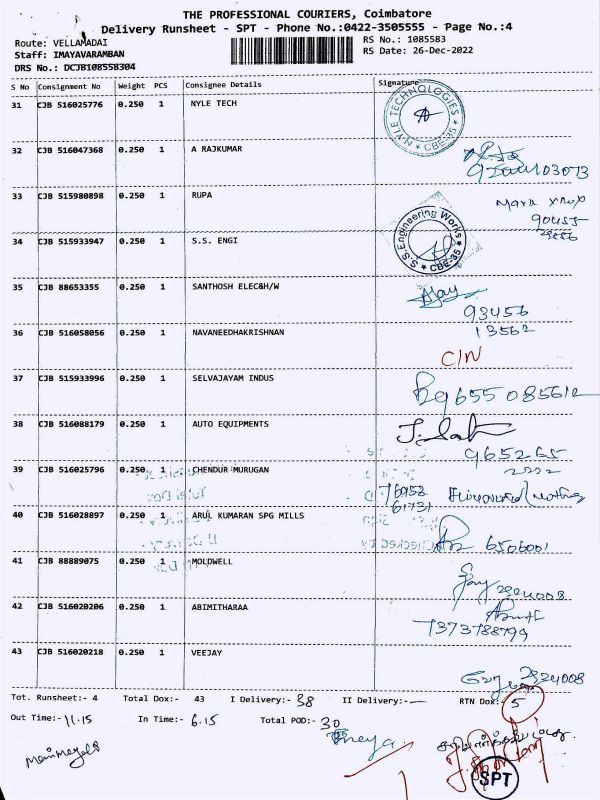 THE PROFESSIONAL COURIERS, Coimbatore
Delivery Runsheet - SPT - Phone No.:0422-3505555 - Page No.:4
Route: VELLAMADAI
RS No.: 1085583
Staff: IMAYAVARAMBAN
RS Date: 26-Dec-2022
DRS No.: DCJB108558304
S No Consignment No Weight PCS Consignee Details Signature
31 CJB 516025776 0.250 1 NYLE TECH
NYLE TECHNOLOGIES
CBE-35
32 CJB 516047368 0.250 1 A RAJKUMAR
33 CJB 515980898 0.250 1 RUPA
90455
34 CJB 515933947 0.250 1 S.S. ENGI
S.S.Engineering Works
CBE-35
35 CJB 88653355 0.250 1 SANTHOSH ELEC&H/W
Ajay
93456
13562
36 CJB 516058056 0.250 1 NAVANEEDHAKRISHNAN
C/N
37 CJB 515933996 0.250 1 SELVAJAYAM INDUS
38 CJB 516088179 0.250 1 AUTO EQUIPMENTS
965265
2222
39 CJB 516025796 0.250 1 CHENDUR MURUGAN
76958
61731
40 CJB 516028897 0.250 1 ARUL KUMARAN SPG MILLS
6506001
41 CJB 88889075 0.250 1 MOLDWELL
42 CJB 516020206 0.250 1 ABIMITHARAA
7373788799
43 CJB 516020218 0.250 1 VEEJAY
2324008
Tot. Runsheet:- 4 Total Dox:- 43 I Delivery:- 38 II Delivery:- RTN Dox:- 5
Out Time:- 11.15 In Time:- 6.15 Total POD:- 30
SPT